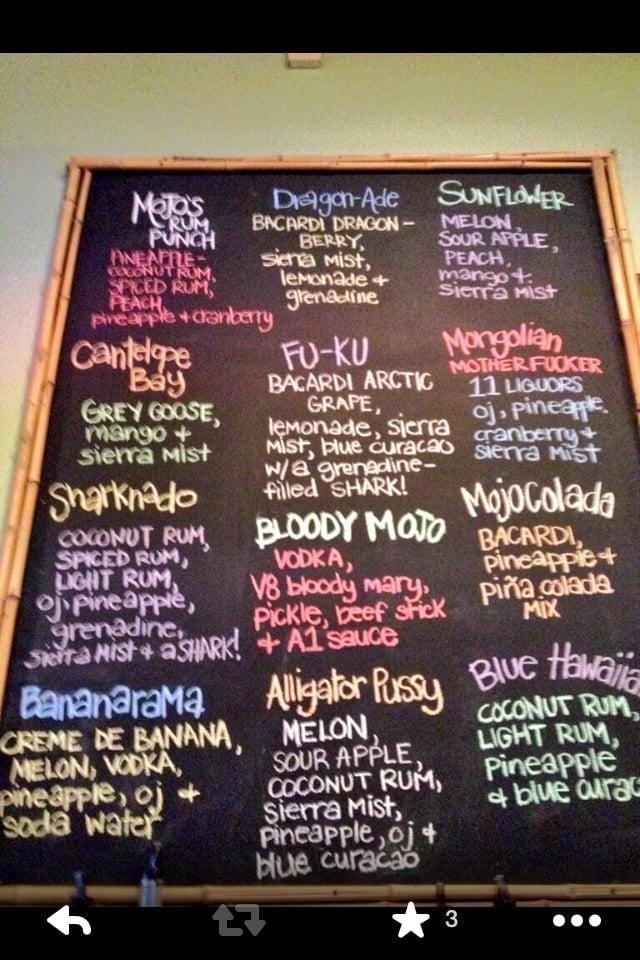 MOJO'S
RUM
PUNCH
PINEAPPLE-
COCONUT RUM,
SPICED RUM,
PEACH,
pineapple + cranberry
Dragon-Ade
BACARDI DRAGON-
BERRY,
sierra mist,
lemonade +
grenadine
SUNFLOWER
MELON,
SOUR APPLE,
PEACH,
mango +
sierra mist
Cantelope
Bay
GREY GOOSE,
mango +
sierra mist
FU-KU
BACARDI ARCTIC
GRAPE,
lemonade, sierra
mist, blue curacao
w/a grenadine-
filled SHARK!
Mongolian
MOTHERFUCKER
11 LIQUORS
oj, pineapple,
cranberry +
sierra mist
Sharknado
COCONUT RUM,
SPICED RUM,
LIGHT RUM,
oj, pineapple,
grenadine,
sierra mist + a SHARK!
BLOODY MOJO
VODKA,
V8 bloody mary,
pickle, beef stick
+ A1 sauce
MojoColada
BACARDI,
pineapple +
piña colada
mix
Bananarama
CREME DE BANANA,
MELON, VODKA,
pineapple, oj +
soda water
Alligator Pussy
MELON,
SOUR APPLE,
COCONUT RUM,
sierra mist,
pineapple, oj +
blue curacao
Blue Hawaiia
COCONUT RUM,
LIGHT RUM,
pineapple
+ blue curac
3